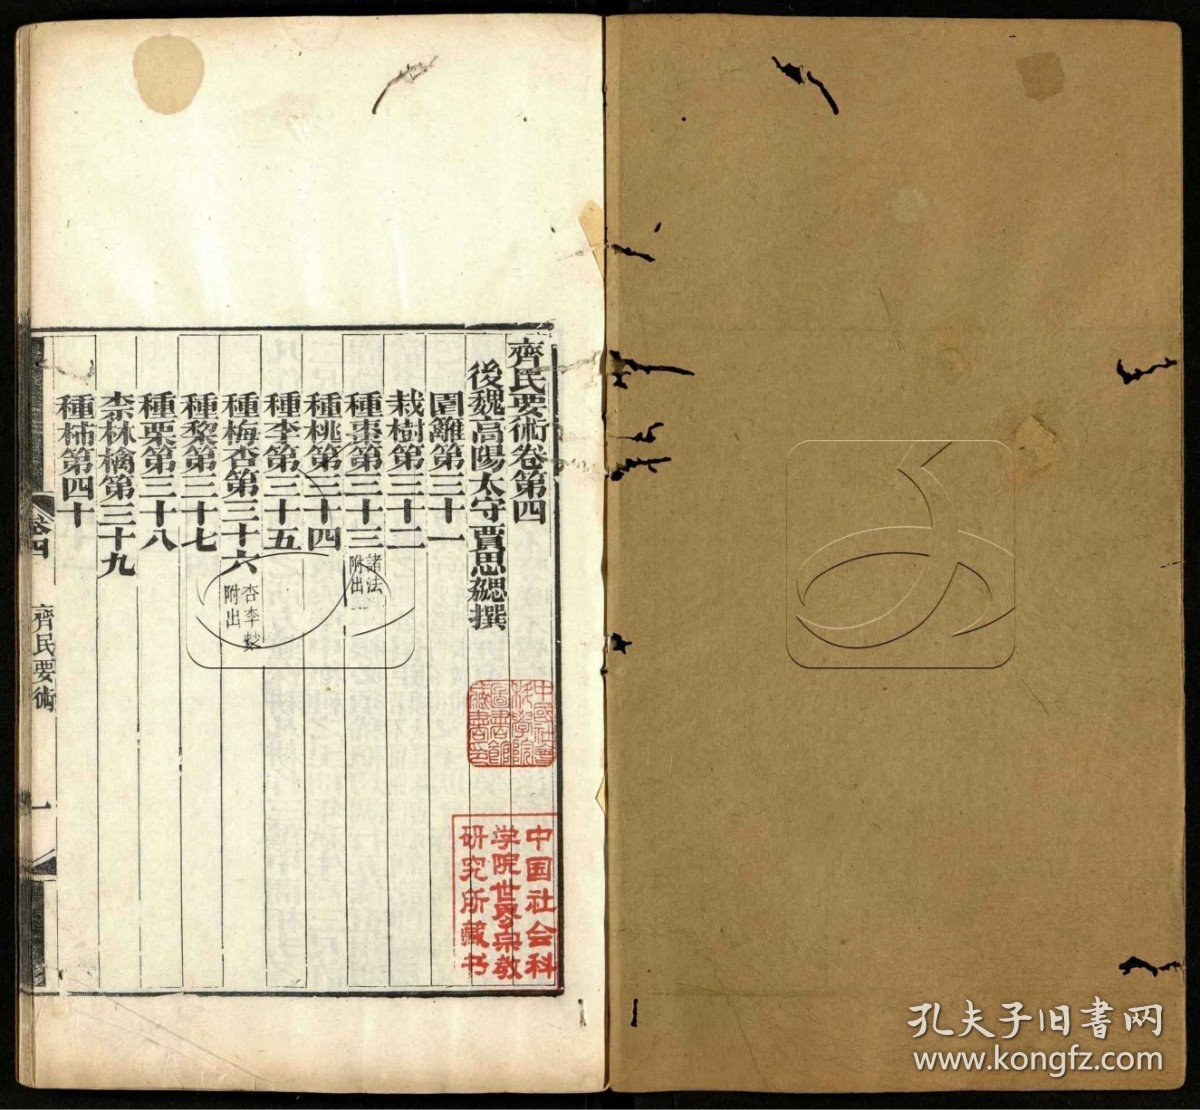 齊民要術卷第四
後魏高陽太守賈思勰撰
園籬第三十一
栽樹第三十二
種棗第三十三 諸法附出
種桃第三十四
種李第三十五
種梅杏第三十六 杏李䴬附出
種黎第三十七
種栗第三十八
柰林檎第三十九
種柿第四十
卷四
齊民要術
一
中國社會
科學院
圖書館
藏書印
中国社会科
学院世界宗教
研究所藏书
孔夫子旧書网
www.kongfz.com